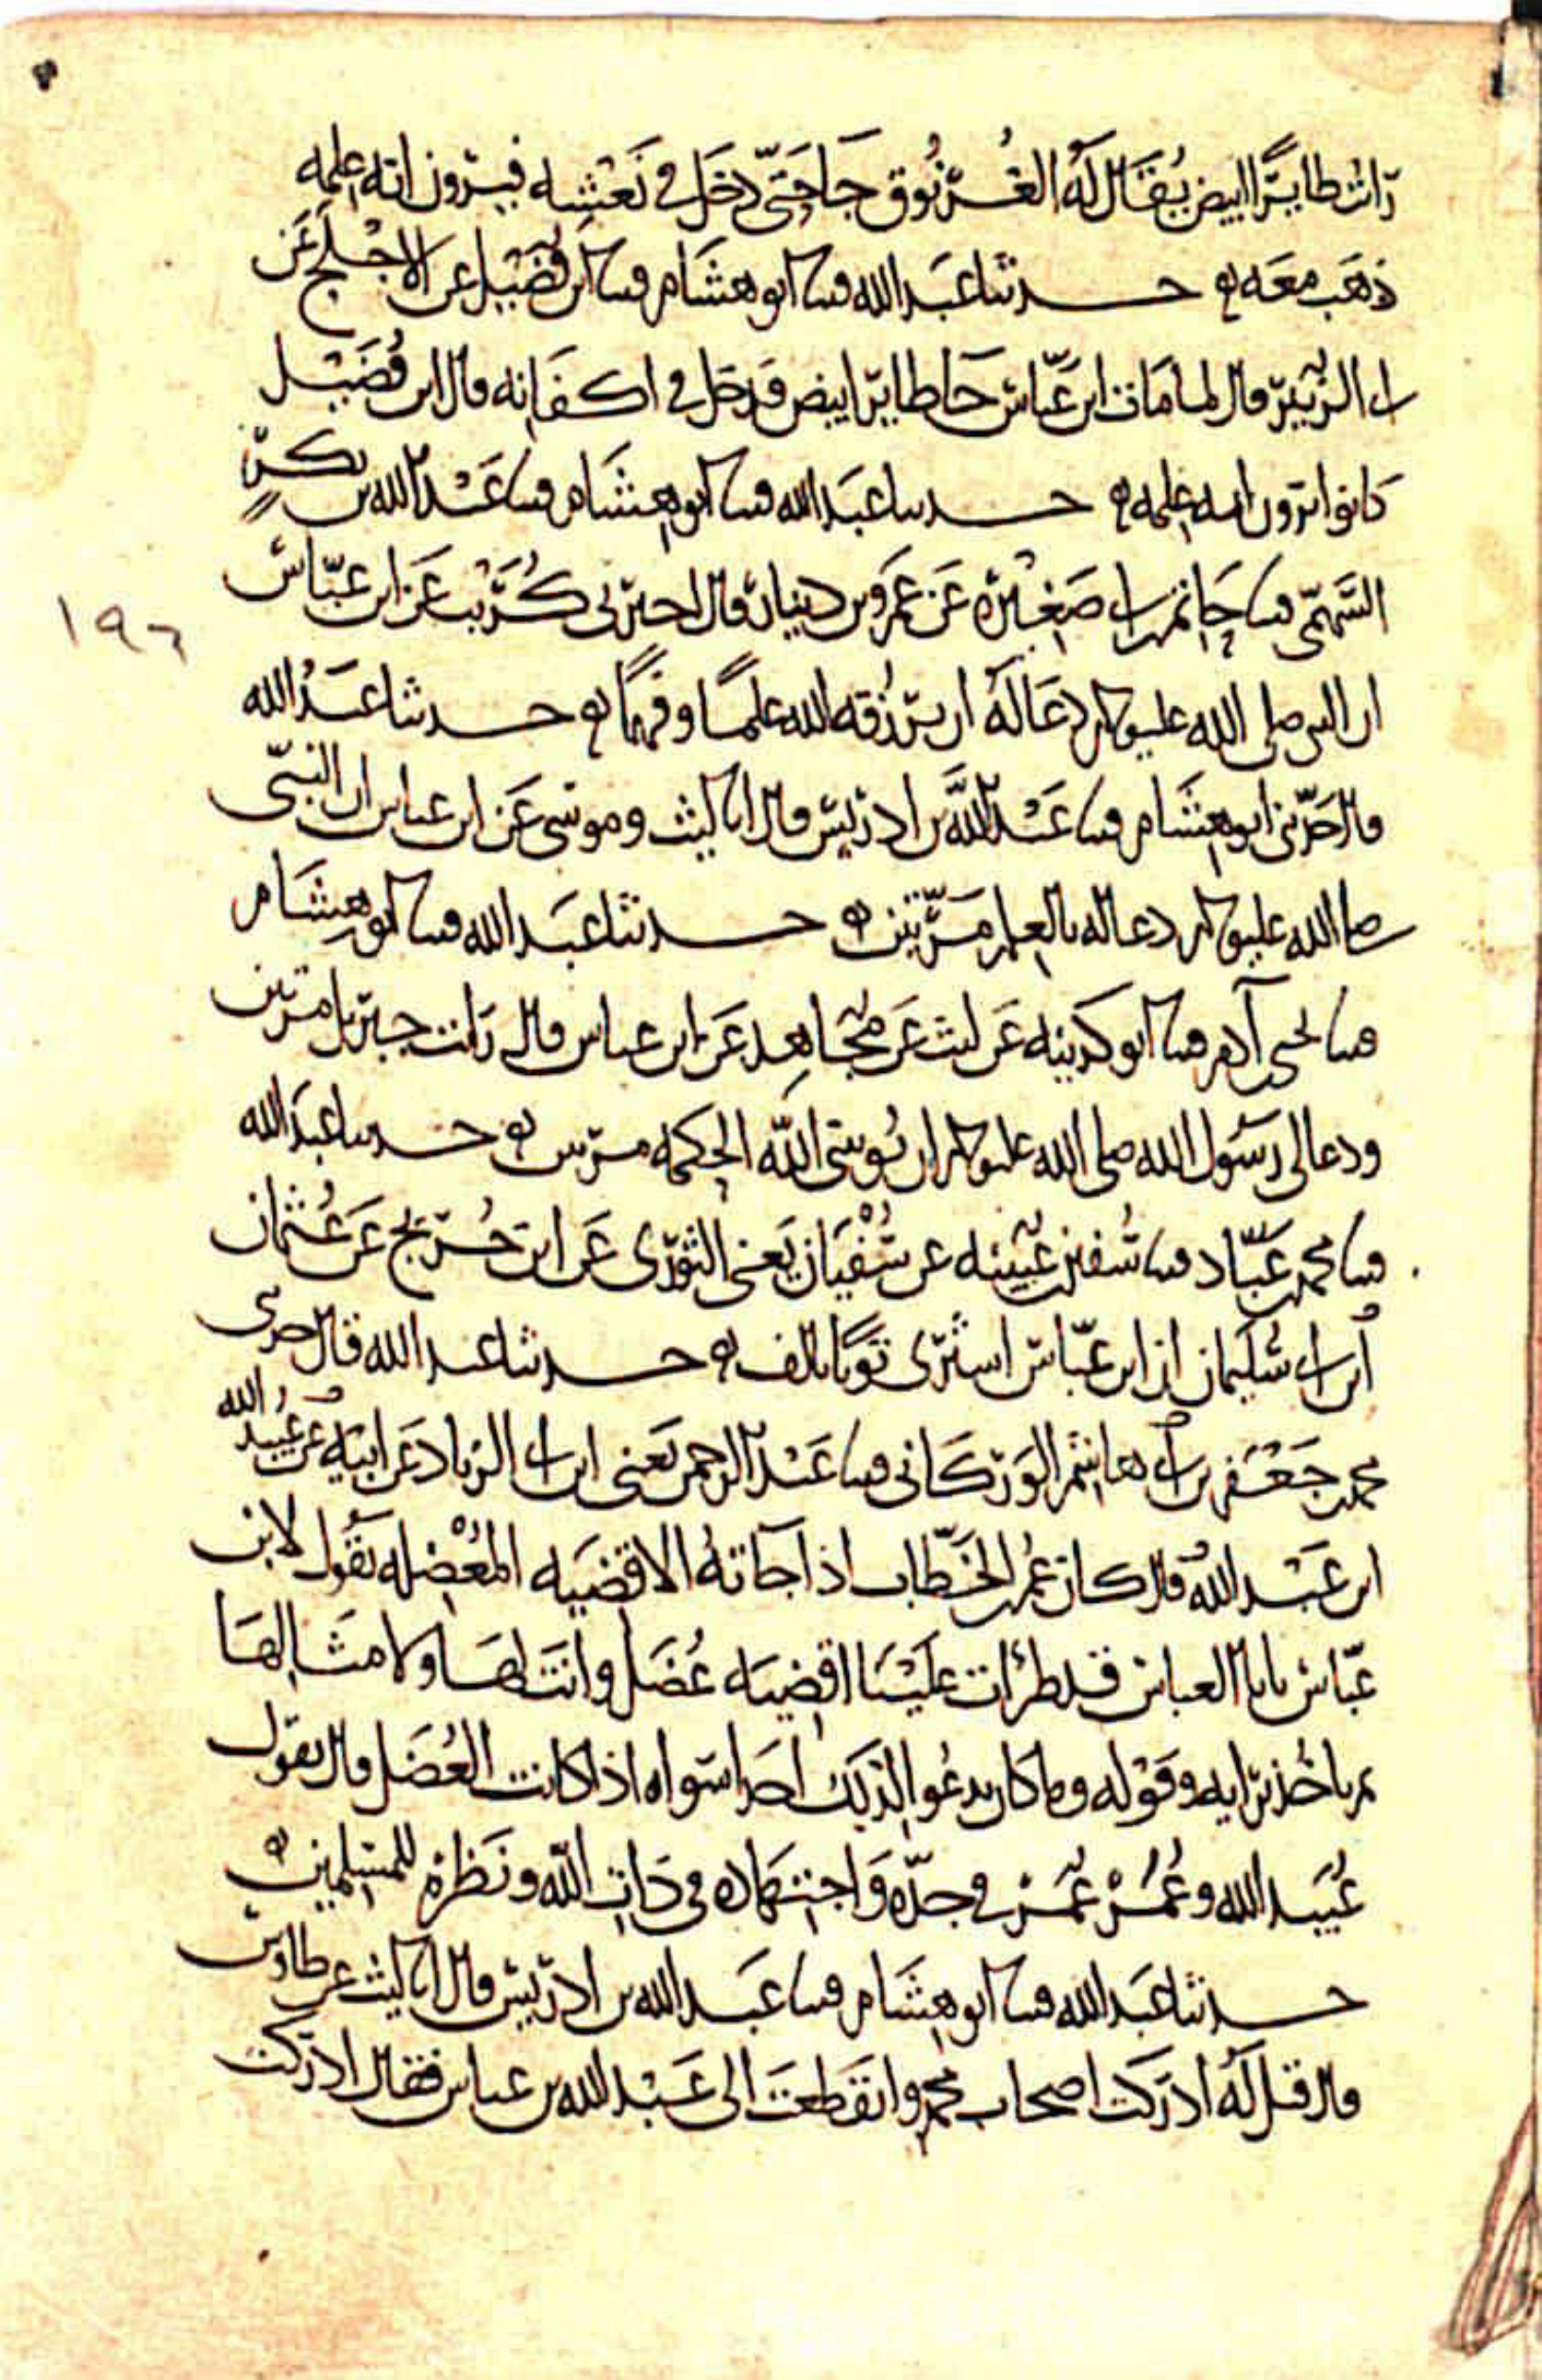 رات طايرا ابيض يقال له الغرنوق جا حتى دخل في نعشه فيرون انه علمه
ذهب معه حدثنا عبد الله قثنا ابو هشام قثنا ابن فضيل عن الاجلح عن
ابي الزبير قال لما مات ابن عباس جا طاير ابيض فدخل في اكفانه قال ابن فضيل
كانوا يرون انه علمه حدثنا عبد الله قثنا ابو هشام قثنا عبد الله بن بكر
السهمي قثنا حاتم بن ابي صغيرة عن عمرو بن دينار قال اخبرني كريب عن ابن عباس
ان النبي صلى الله عليه وسلم دعا له ان يرزقه الله علما وفهما حدثنا عبد الله
١٩٦
قال حدثني ابو هشام قثنا عبد الله بن ادريس قال انا ليث وموسى عن ابن عباس ان النبي
صلى الله عليه وسلم دعا له بالعلم مرتين حدثنا عبد الله قثنا ابو هشام
قثنا يحيى بن آدم قثنا ابو كدينه عن ليث عن مجاهد عن ابن عباس قال رايت جبريل مرتين
ودعا لي رسول الله صلى الله عليه وسلم ان يؤتيني الله الحكمه مرتين حدثنا عبد الله
قثنا محمد بن عباد قثنا سفين بن عيينه عن سفيان يعني الثوري عن ابن جريج عن عثمان
ابن ابي سليمان ان ابن عباس اشترى ثوبا بالف حدثنا عبد الله قال حدثني
محمد بن جعفر بن ابي هاشم الوركاني قثنا عبد الرحمن يعني ابن ابي الزناد عن ابيه عن عبيد الله
ابن عبد الله قال كان عمر بن الخطاب اذا جاته الاقضيه المعضله يقول لابن
عباس يابا العباس قد طرات علينا اقضيه عضل وانت لها ولامثالها
ثم ياخذ برايه وقوله وما كان يدعو لذلك احدا سواه اذا كانت العضل قال يقول
عبيد الله وعمر عمر في جده واجتهاده في ذات الله ونظره للمسلمين
حدثنا عبد الله قثنا ابو هشام قثنا عبد الله بن ادريس قال انا ليث عن طاوس
قال قيل له ادركت اصحاب محمد وانقطعت الى عبد الله بن عباس فقال ادركت